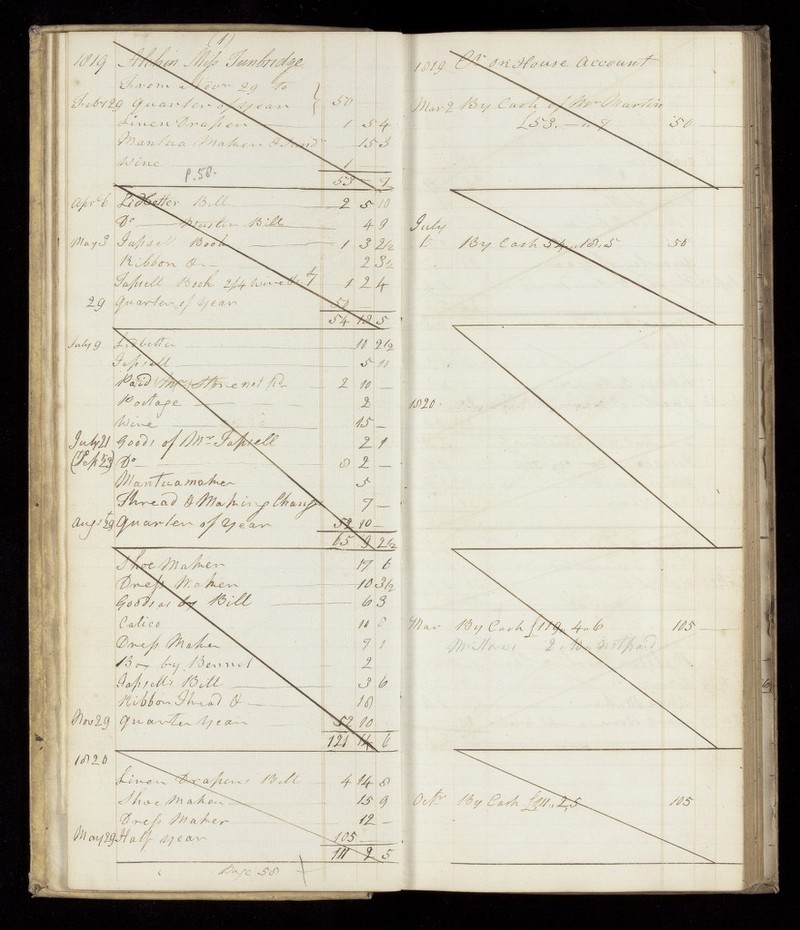 (1)
1819 Miss Tunbridge
From Novr 29 to
Feby 29 Quarter of year 50
Linen Draper 1 5 4
Mantua Maker & 15 3
Wine 1
53 - 7
p. 58.
Apr 6 Ledbetter Bill 2 5 10
Do Muslin Bill 4 9
May 3 Tapsell Book 1 3 2½
Ribbon & 2 3½
Tapsell Book 2/4 Wine 1 2 4
29 Quarter of year 50
54 18 5
July 9 Ledbetter 11 2½
Tapsell 5 11
Paid Mrs Stone 2 10 -
Postage 2
Wine 15 -
July 21 Goods of Mr Tapsell 2 1
Do 8 2 -
Mantuamaker 5
Thread & Making 7 -
Augst 29 Quarter of year 52 10 -
65 9 2½
Shoe Maker 17 6
Dress Maker 10 3½
Goods as by Bill 6 3
Calico 10
Dress Maker
Box by Bennet 2
Tapsells Bill 3 6
Ribbon Thread & 18
Nov 29 Quarter year 52 10
121 14 6
1820
Linen Drapers Bill 4 14 8
Shoe Maker 15 9
Dress Maker 12 -
May 29 Half year 105
111 2 5
Page 58
1819 Cr on House Account
Mar 2 By Cash of Mr Martin
£53. - 7 50
July
1 By Cash 54,, 18,, 5 50
1820.
Mar By Cash £119,, 4,, 6 105
Octr By Cash £111,, 2,, 5 105